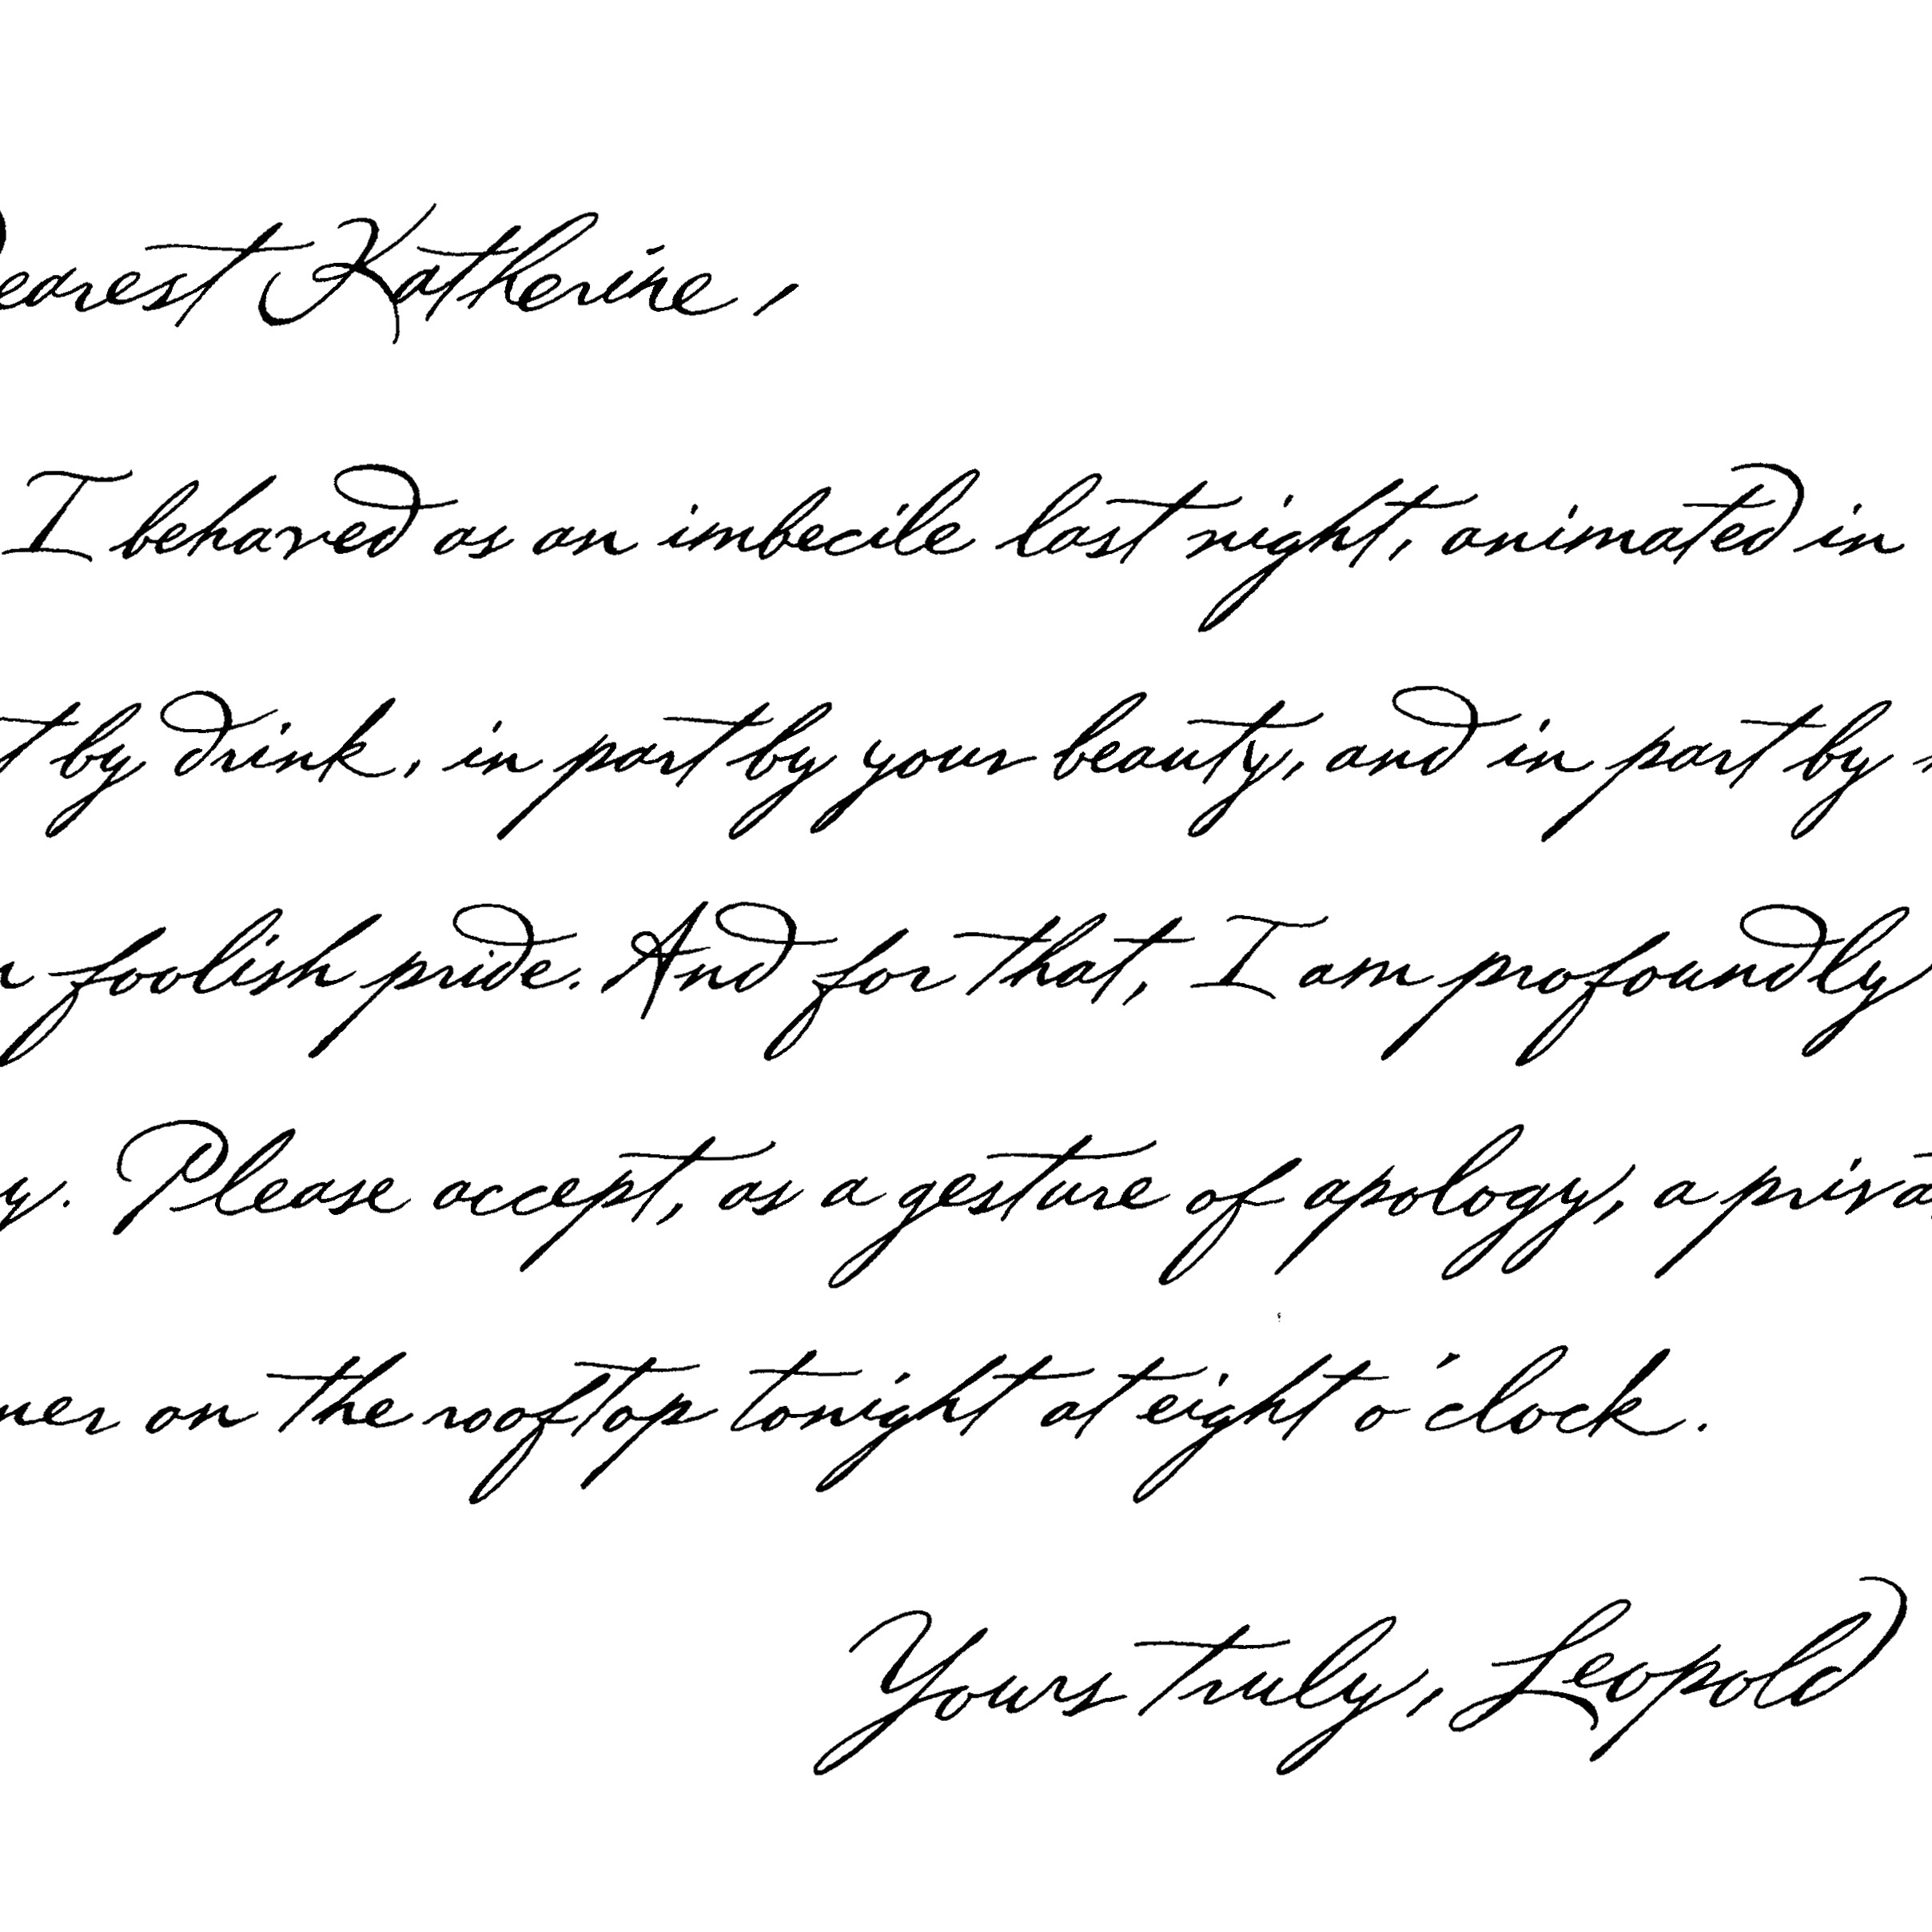 earest Katherine,
I behaved as an imbecile last night, animated in
t by drink, in part by your beauty, and in part by
foolish pride. And for that, I am profoundly
y. Please accept, as a gesture of apology, a priva
ner on the rooftop tonight at eight o'clock.
Yours truly, Leopold